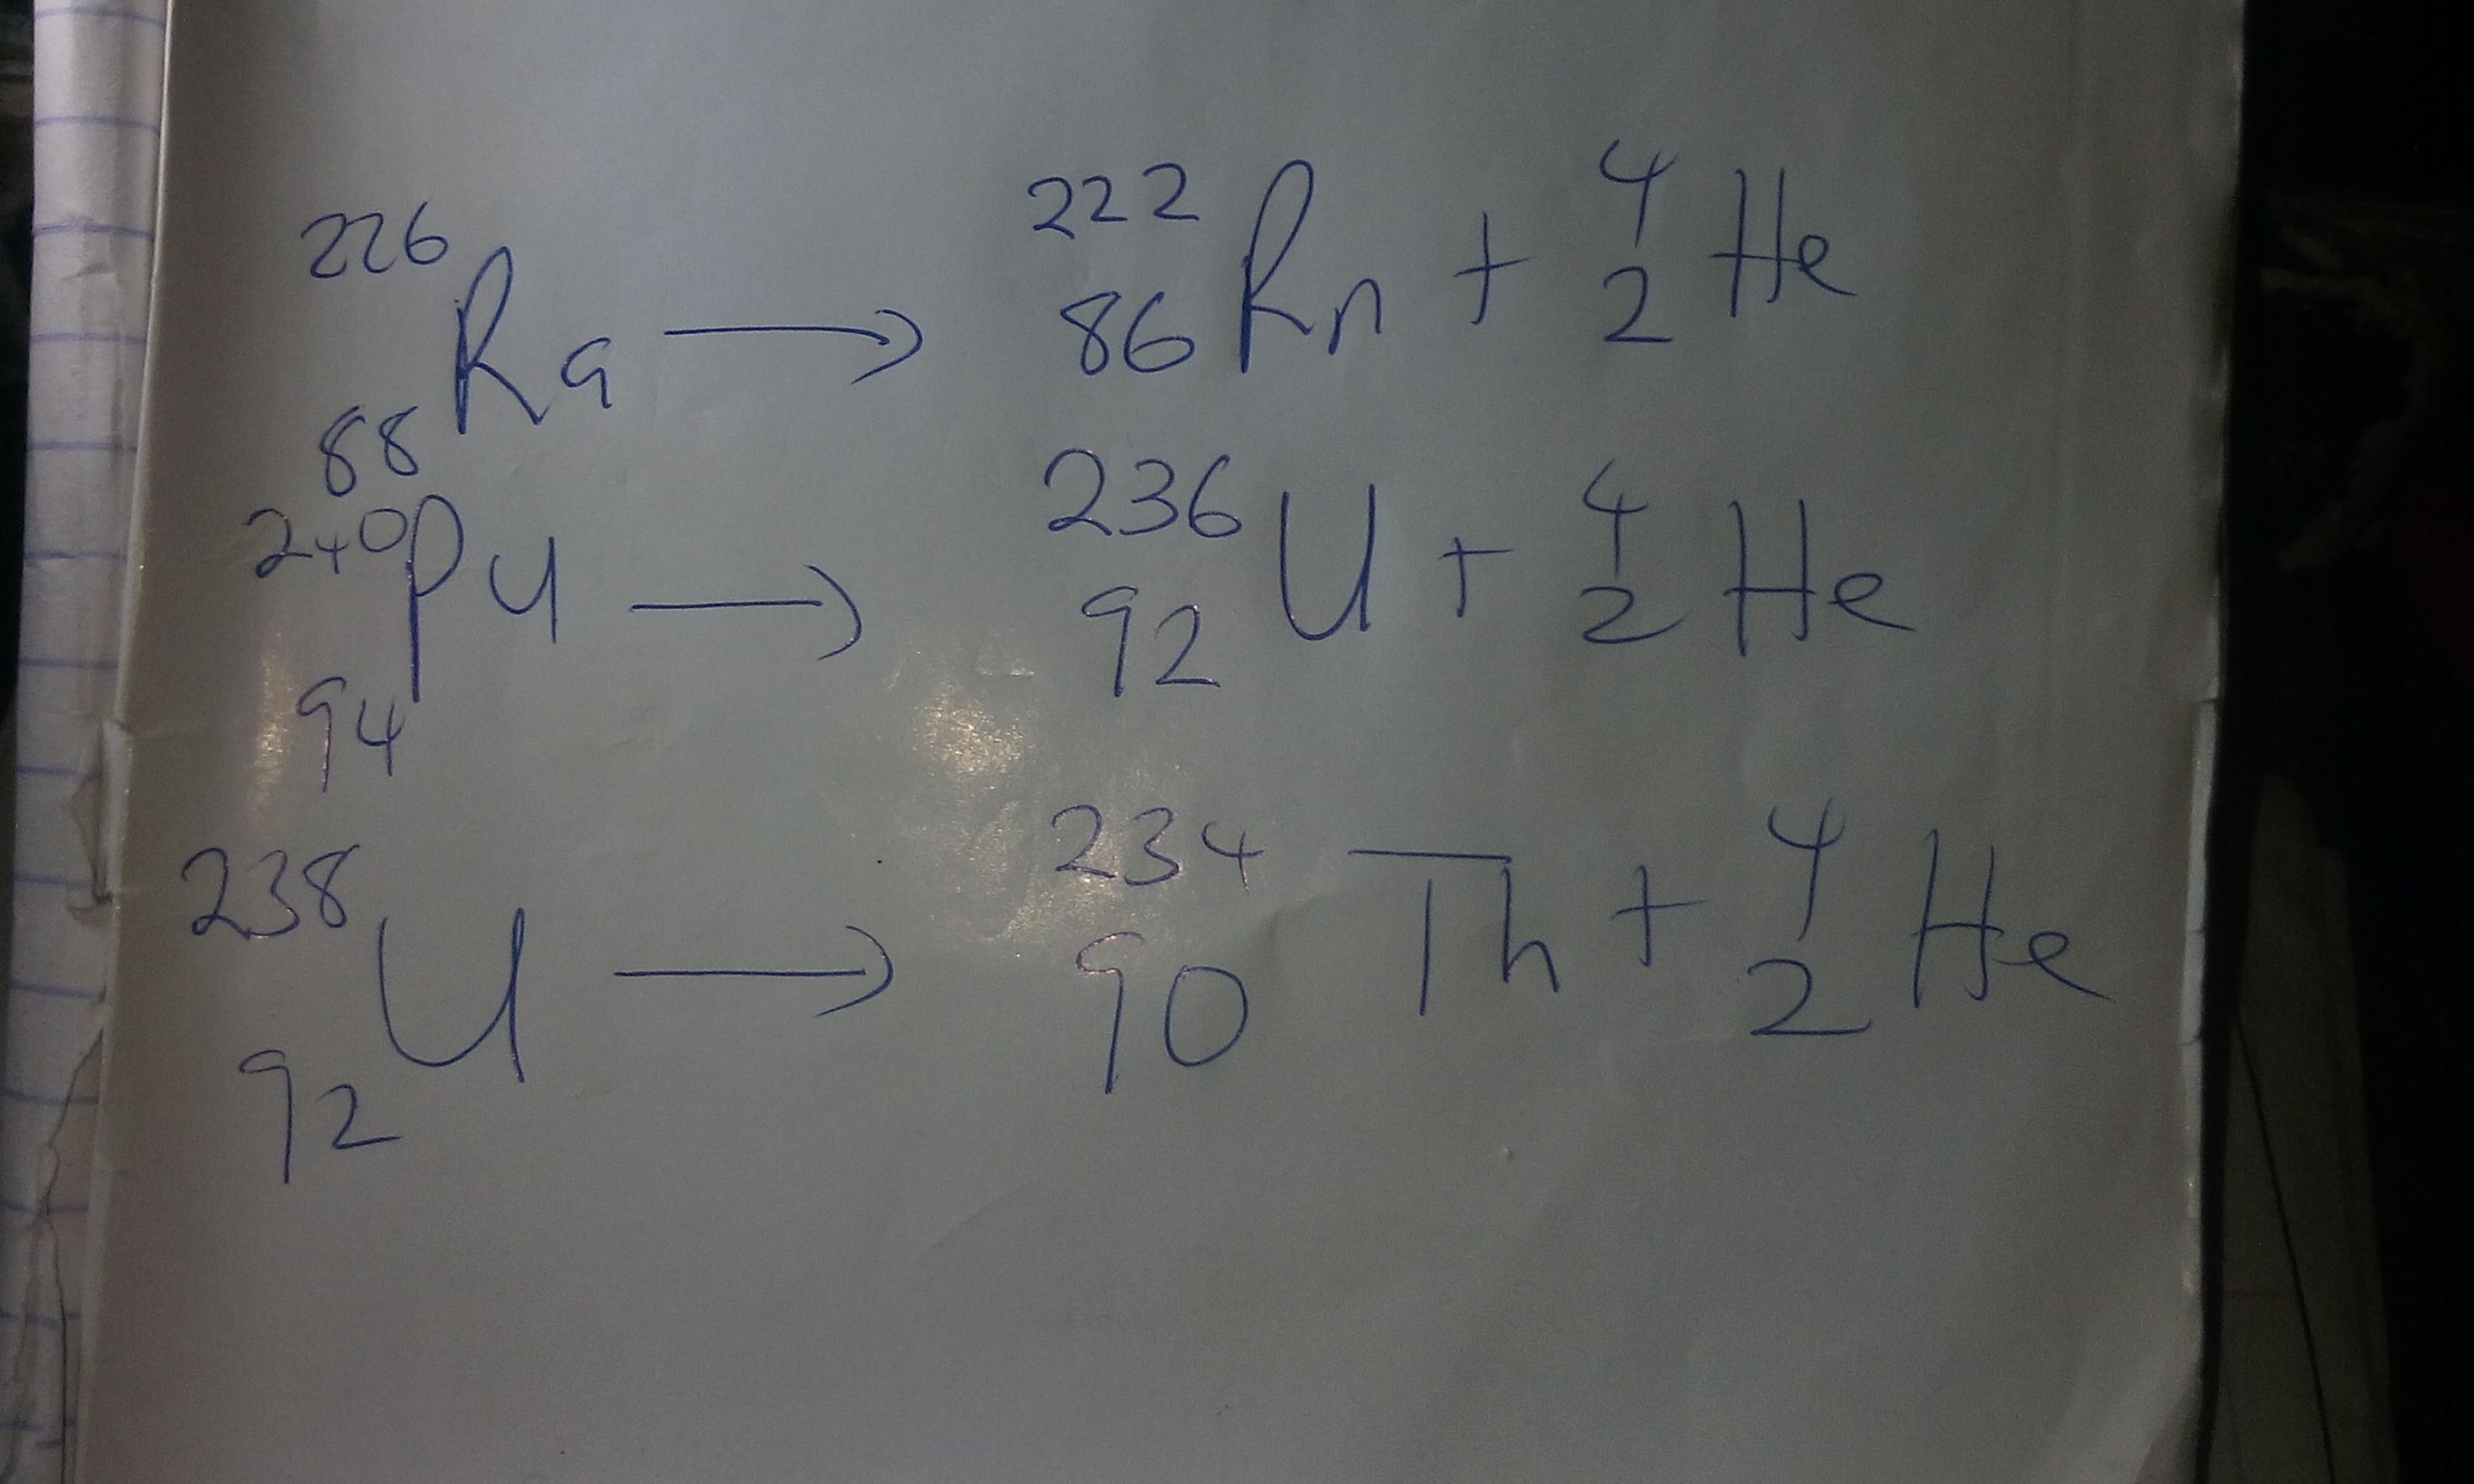 ²²⁶₈₈Ra → ²²²₈₆Rn + ⁴₂He
²⁴⁰₉₄Pu → ²³⁶₉₂U + ⁴₂He
²³⁸₉₂U → ²³⁴₉₀Th + ⁴₂He